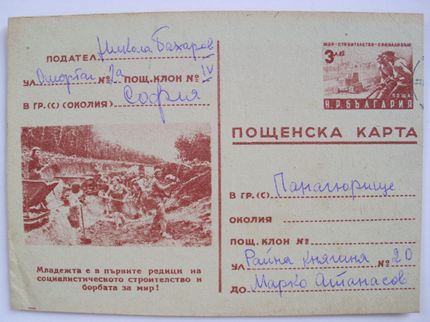 ПОДАТЕЛ Никола Бахаров
УЛ. № 2а ПОЩ. КЛОН № IV
В ГР. (С) (ОКОЛИЯ) София
Младежта е в първите редици на
социалистическото строителство и
борбата за мир!
МИР - СТРОИТЕЛСТВО - СОЦИАЛИЗЪМ
3 ЛВ
ПОЩА
Н.Р. БЪЛГАРИЯ
ПОЩЕНСКА КАРТА
В ГР. (С) Панагюрище
ОКОЛИЯ
ПОЩ. КЛОН №
УЛ Райна княгиня № 20
ДО Марко Атанасов